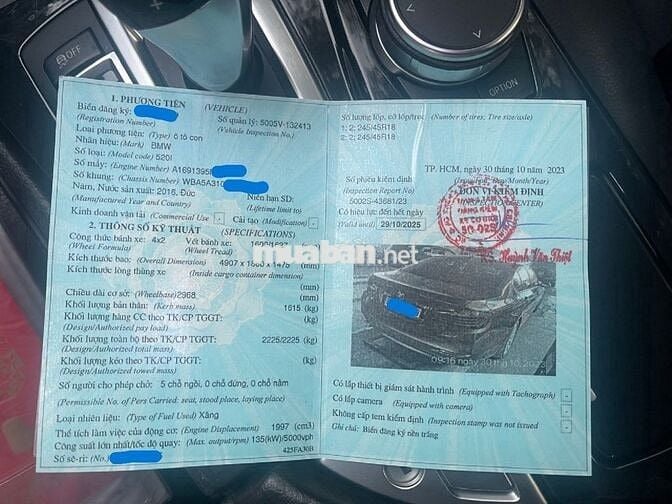 OFF
OPTION
1. PHƯƠNG TIỆN (VEHICLE)
Biển đăng ký:
(Registration Number)
Số quản lý: 5005V-132413
(Vehicle Inspection No.)
Loại phương tiện: (Type) ô tô con
Nhãn hiệu: (Mark) BMW
Số loại: (Model code) 520I
Số máy: (Engine Number) A1691395
Số khung: (Chassis Number) WBA5A310
Năm, Nước sản xuất: 2016, Đức
(Manufactured Year and Country)
Niên hạn SD:
(Lifetime limit to)
Kinh doanh vận tải (Commercial Use) - Cải tạo (Modification) -
2. THÔNG SỐ KỸ THUẬT (SPECIFICATIONS)
Công thức bánh xe: 4x2
(Wheel Formula)
Vết bánh xe:
(Wheel Tread)
(mm)
Kích thước bao: (Overall Dimension) 4907 x 1475 (mm)
Kích thước lòng thùng xe
(Inside cargo container dimension)
(mm)
Chiều dài cơ sở: (Wheelbase) 2968 (mm)
Khối lượng bản thân: (Kerb mass) 1615 (kg)
Khối lượng hàng CC theo TK/CP TGGT: (kg)
(Design/Authorized pay load)
Khối lượng toàn bộ theo TK/CP TGGT: 2225/2225 (kg)
(Design/Authorized total mass)
Khối lượng kéo theo TK/CP TGGT: (kg)
(Design/Authorized towed mass)
Số người cho phép chở: 5 chỗ ngồi, 0 chỗ đứng, 0 chỗ nằm
(Permissible No. of Pers Carried: seat, stood place, laying place)
Loại nhiên liệu: (Type of Fuel Used) Xăng
Thể tích làm việc của động cơ: (Engine Displacement) 1997 (cm3)
Công suất lớn nhất/tốc độ quay: (Max. output/rpm) 135(kW)/5000vph
Số sê-ri: (No.)
425FA30B
Số lượng lốp, cỡ lốp/trục (Number of tires; Tire size/axle)
1: 2; 245/45R18
2: 2; 245/45R18
TP. HCM, ngày 30 tháng 10 năm 2023
Số phiếu kiểm định
(Inspection Report No)
5002S-43681/23
(Issued on: Day/Month/Year)
ĐƠN VỊ KIỂM ĐỊNH
(INSPECTION CENTER)
Có hiệu lực đến hết ngày
(Valid until) 29/10/2025
50-02S
Huỳnh Văn Thiệt
muaban.net
09:16 ngày 30 th 10, 2023
Có lắp thiết bị giám sát hành trình (Equipped with Tachograph) -
Có lắp camera (Equipped with camera) -
Không cấp tem kiểm định (Inspection stamp was not issued) -
Ghi chú: Biển đăng ký nền trắng